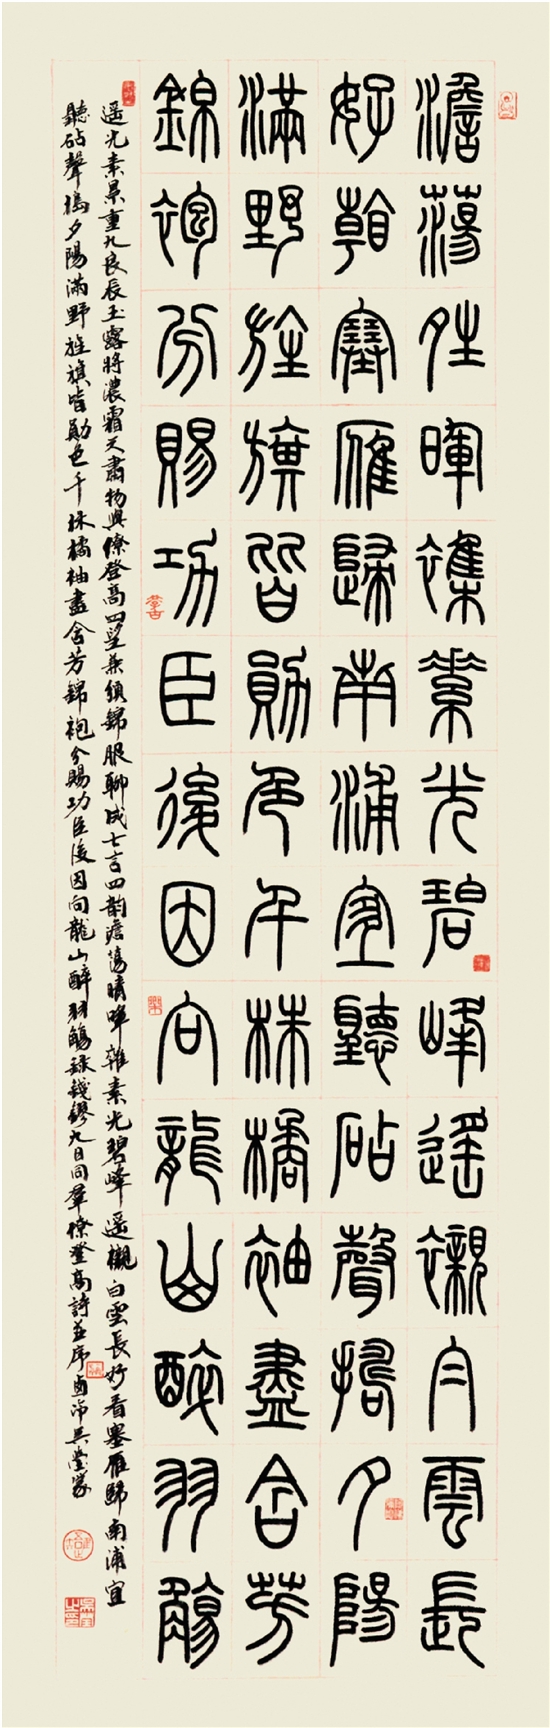 澹蕩晴暉雜素光碧峰遙襯白雲長
好看塞雁歸南浦宜聽砧聲搗夕陽
滿野旌旗皆勛色千株橘柚盡含芳
錦袍分賜功臣後因向龍山醉羽觴
遥光素景重九良辰玉露將濃霜天肅物與僚登高四望兼頒錦服聊成七言四韵澹蕩晴暉雜素光碧峰遥襯白雲長好看塞雁歸南浦宜
聽砧聲搗夕陽滿野旌旗皆勛色千株橘柚盡含芳錦袍分賜功臣後因向龍山醉羽觴録錢鏐九日同羣僚登高詩並序 吴瑩篆